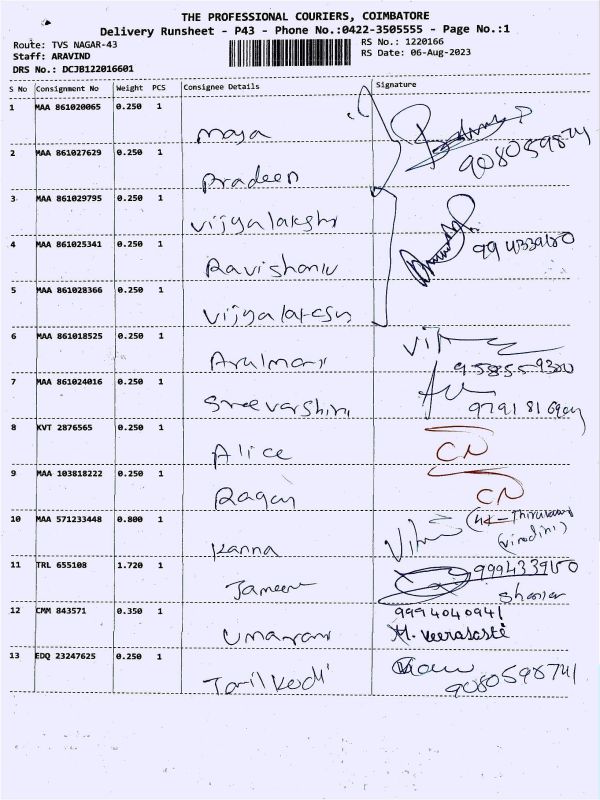 THE PROFESSIONAL COURIERS, COIMBATORE
Delivery Runsheet - P43 - Phone No.:0422-3505555 - Page No.:1
Route: TVS NAGAR-43 RS No.: 1220166
Staff: ARAVIND RS Date: 06-Aug-2023
DRS No.: DCJB122016601
S No Consignment No Weight PCS Consignee Details Signature
1 MAA 861020065 0.250 1 Maya
2 MAA 861027629 0.250 1 Pradeep 9080598741
3 MAA 861029795 0.250 1 Vijyalakshi
4 MAA 861025341 0.250 1
5 MAA 861028366 0.250 1
6 MAA 861018525 0.250 1
7 MAA 861024016 0.250 1 Sreevarshini
8 KVT 2876565 0.250 1 Alice CN
9 MAA 103818222 0.250 1 CN
10 MAA 571233448 0.800 1 Kanna (virodini)
11 TRL 655108 1.720 1 9994339150
12 CMM 843571 0.350 1 9994040941
M. Veerasasté
13 EDQ 23247625 0.250 1 Tamilkodi 9080598741